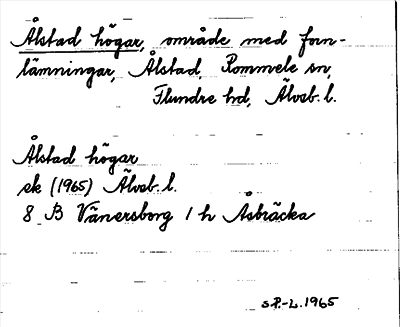 Ålstad högar, område med forn-
lämningar, Ålstad, Rommele sn,
Flundre hd, Älvsb. l.
Ålstad högar
ek (1965) Älvsb. l.
8 B Vänersborg 1 h Åsbräcka
SP.-L. 1965